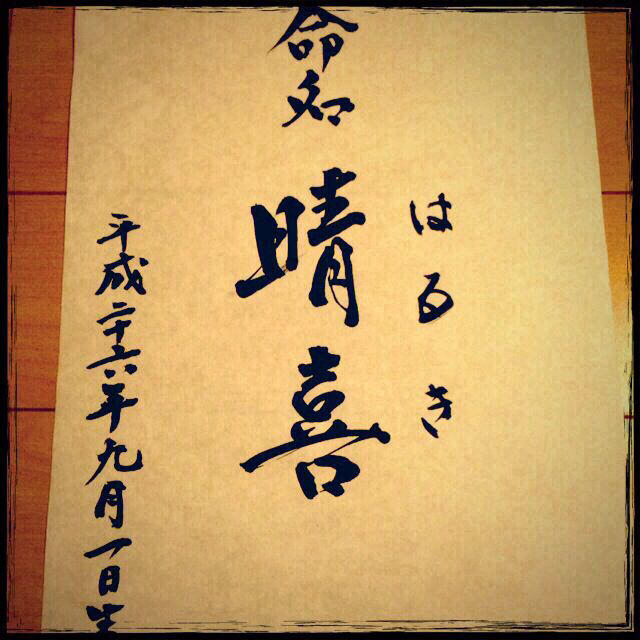 命名
はるき
晴喜
平成二十六年九月一日生